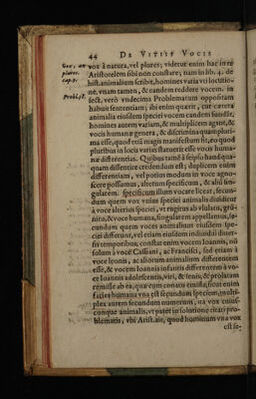 44 DE VITIIS VOCIS
vox à natura, vel plures; videtur enim hac in re
Aristotelem sibi non constare; nam in lib. 4. de
hist. animalium scribit, homines varia vti locutio-
ne, vnam tamen, & eandem reddere vocem. in
sect. verò vndecima Problematum oppositam
habuit sententiam; ibi enim quærit, cur cætera
animalia eiusdem speciei vocem eandem fundãt,
homines autem variam, & multiplicem
vocis humanæ genera, & discrimina quàm pluri-
ma esse, quod
pluribus in locis
næ differentias.
differentiam, vel potius modum in voce agno-
scere possumus, alterum specificum, & aliũ sin-
gularem. specificum illum vocare liceat, secun-
dum quem vox vnius speciei animalis diuiditur
à voce alterius speciei, vt rugitus ab vlulatu,
& voce humana, singularem appellamus,
cundum quem voces animalium eiusdem spe-
ciei differunt, vel etiam eiusdem indiuidui diuer-
sis temporibus, constat enim vocem Ioannis, nõ
solum à voce Cassiani, ac Francisci, sed etiam à
voce leonis, ac aliorum animalium differentem
esse, & vocem Ioannis infantis differentem à vo-
ce Ioannis adolescentis, viri, & senis, & prolatam
remisse ab ea, quæ cum conatu emissa, sicut enim
facies humana vna est secundum speciem, multi-
plex autem secundum numerum, ita vox cuius-
cunque animalis, vt patet in solutione citati pro-
blematis, vbi Arist. ait, quod hominum vna vox
est se-
Probl. 57